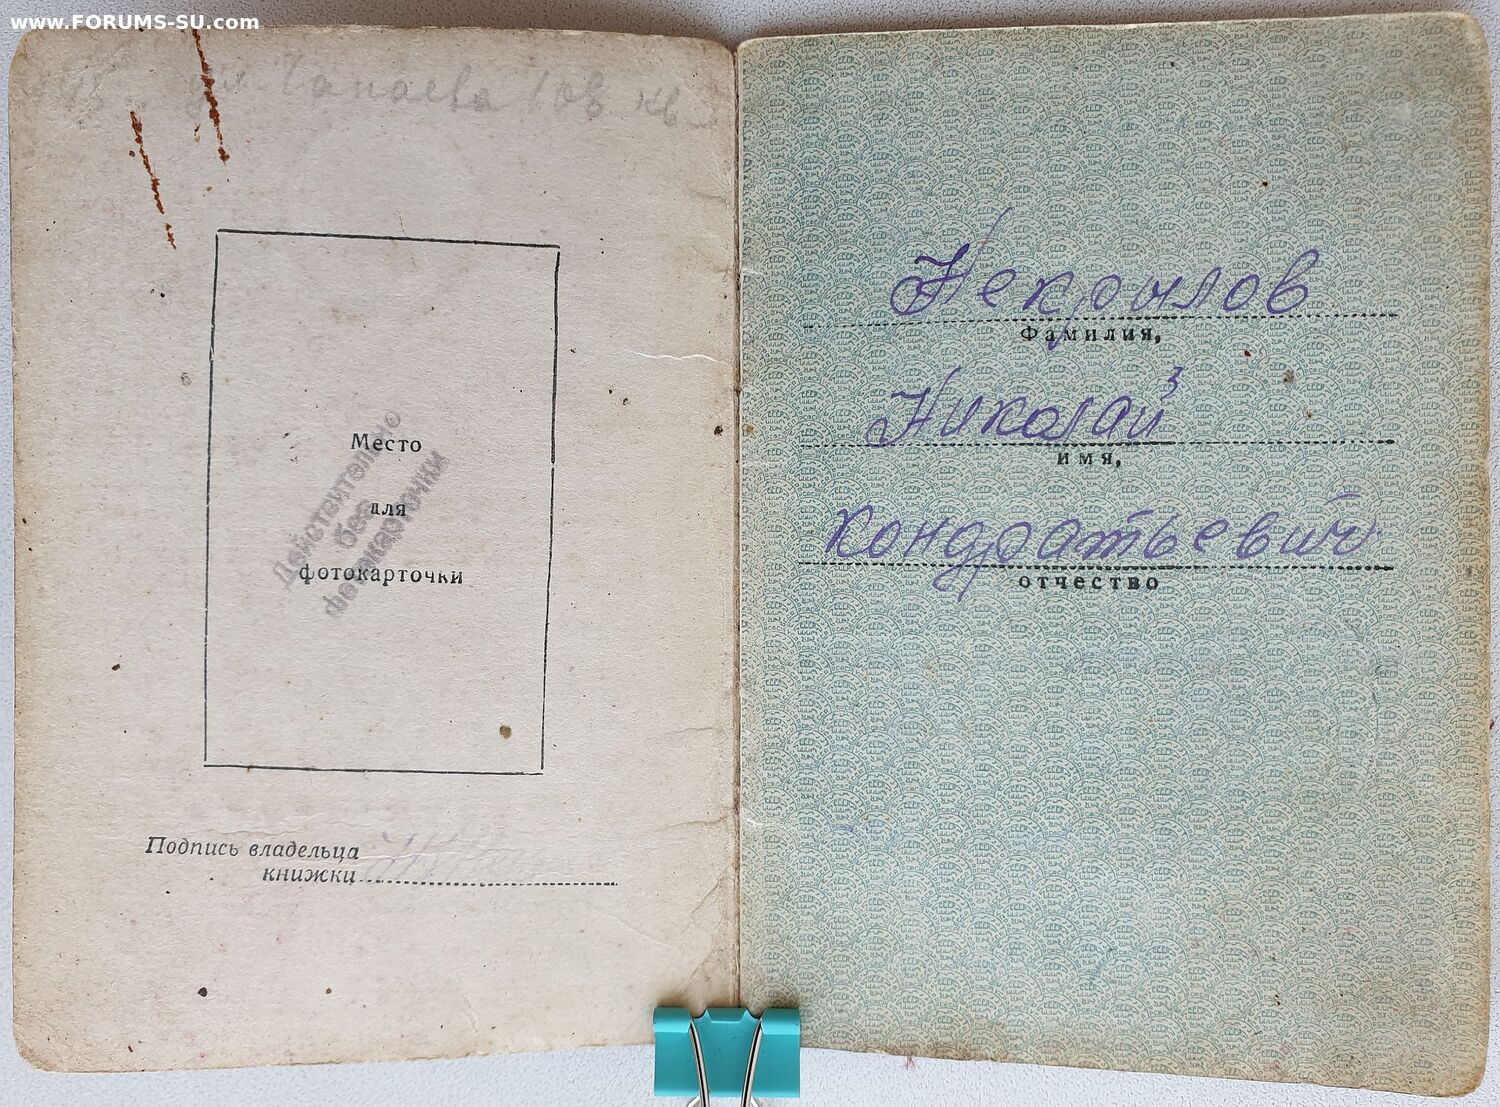 www.FORUMS-SU.com
ул. Чапаева 108 кв
Место
для
фотокарточки
Действительно
без
фотокарточки
Подпись владельца
книжки
Некрылов
Фамилия,
Николай
имя,
Кондратьевич
отчество